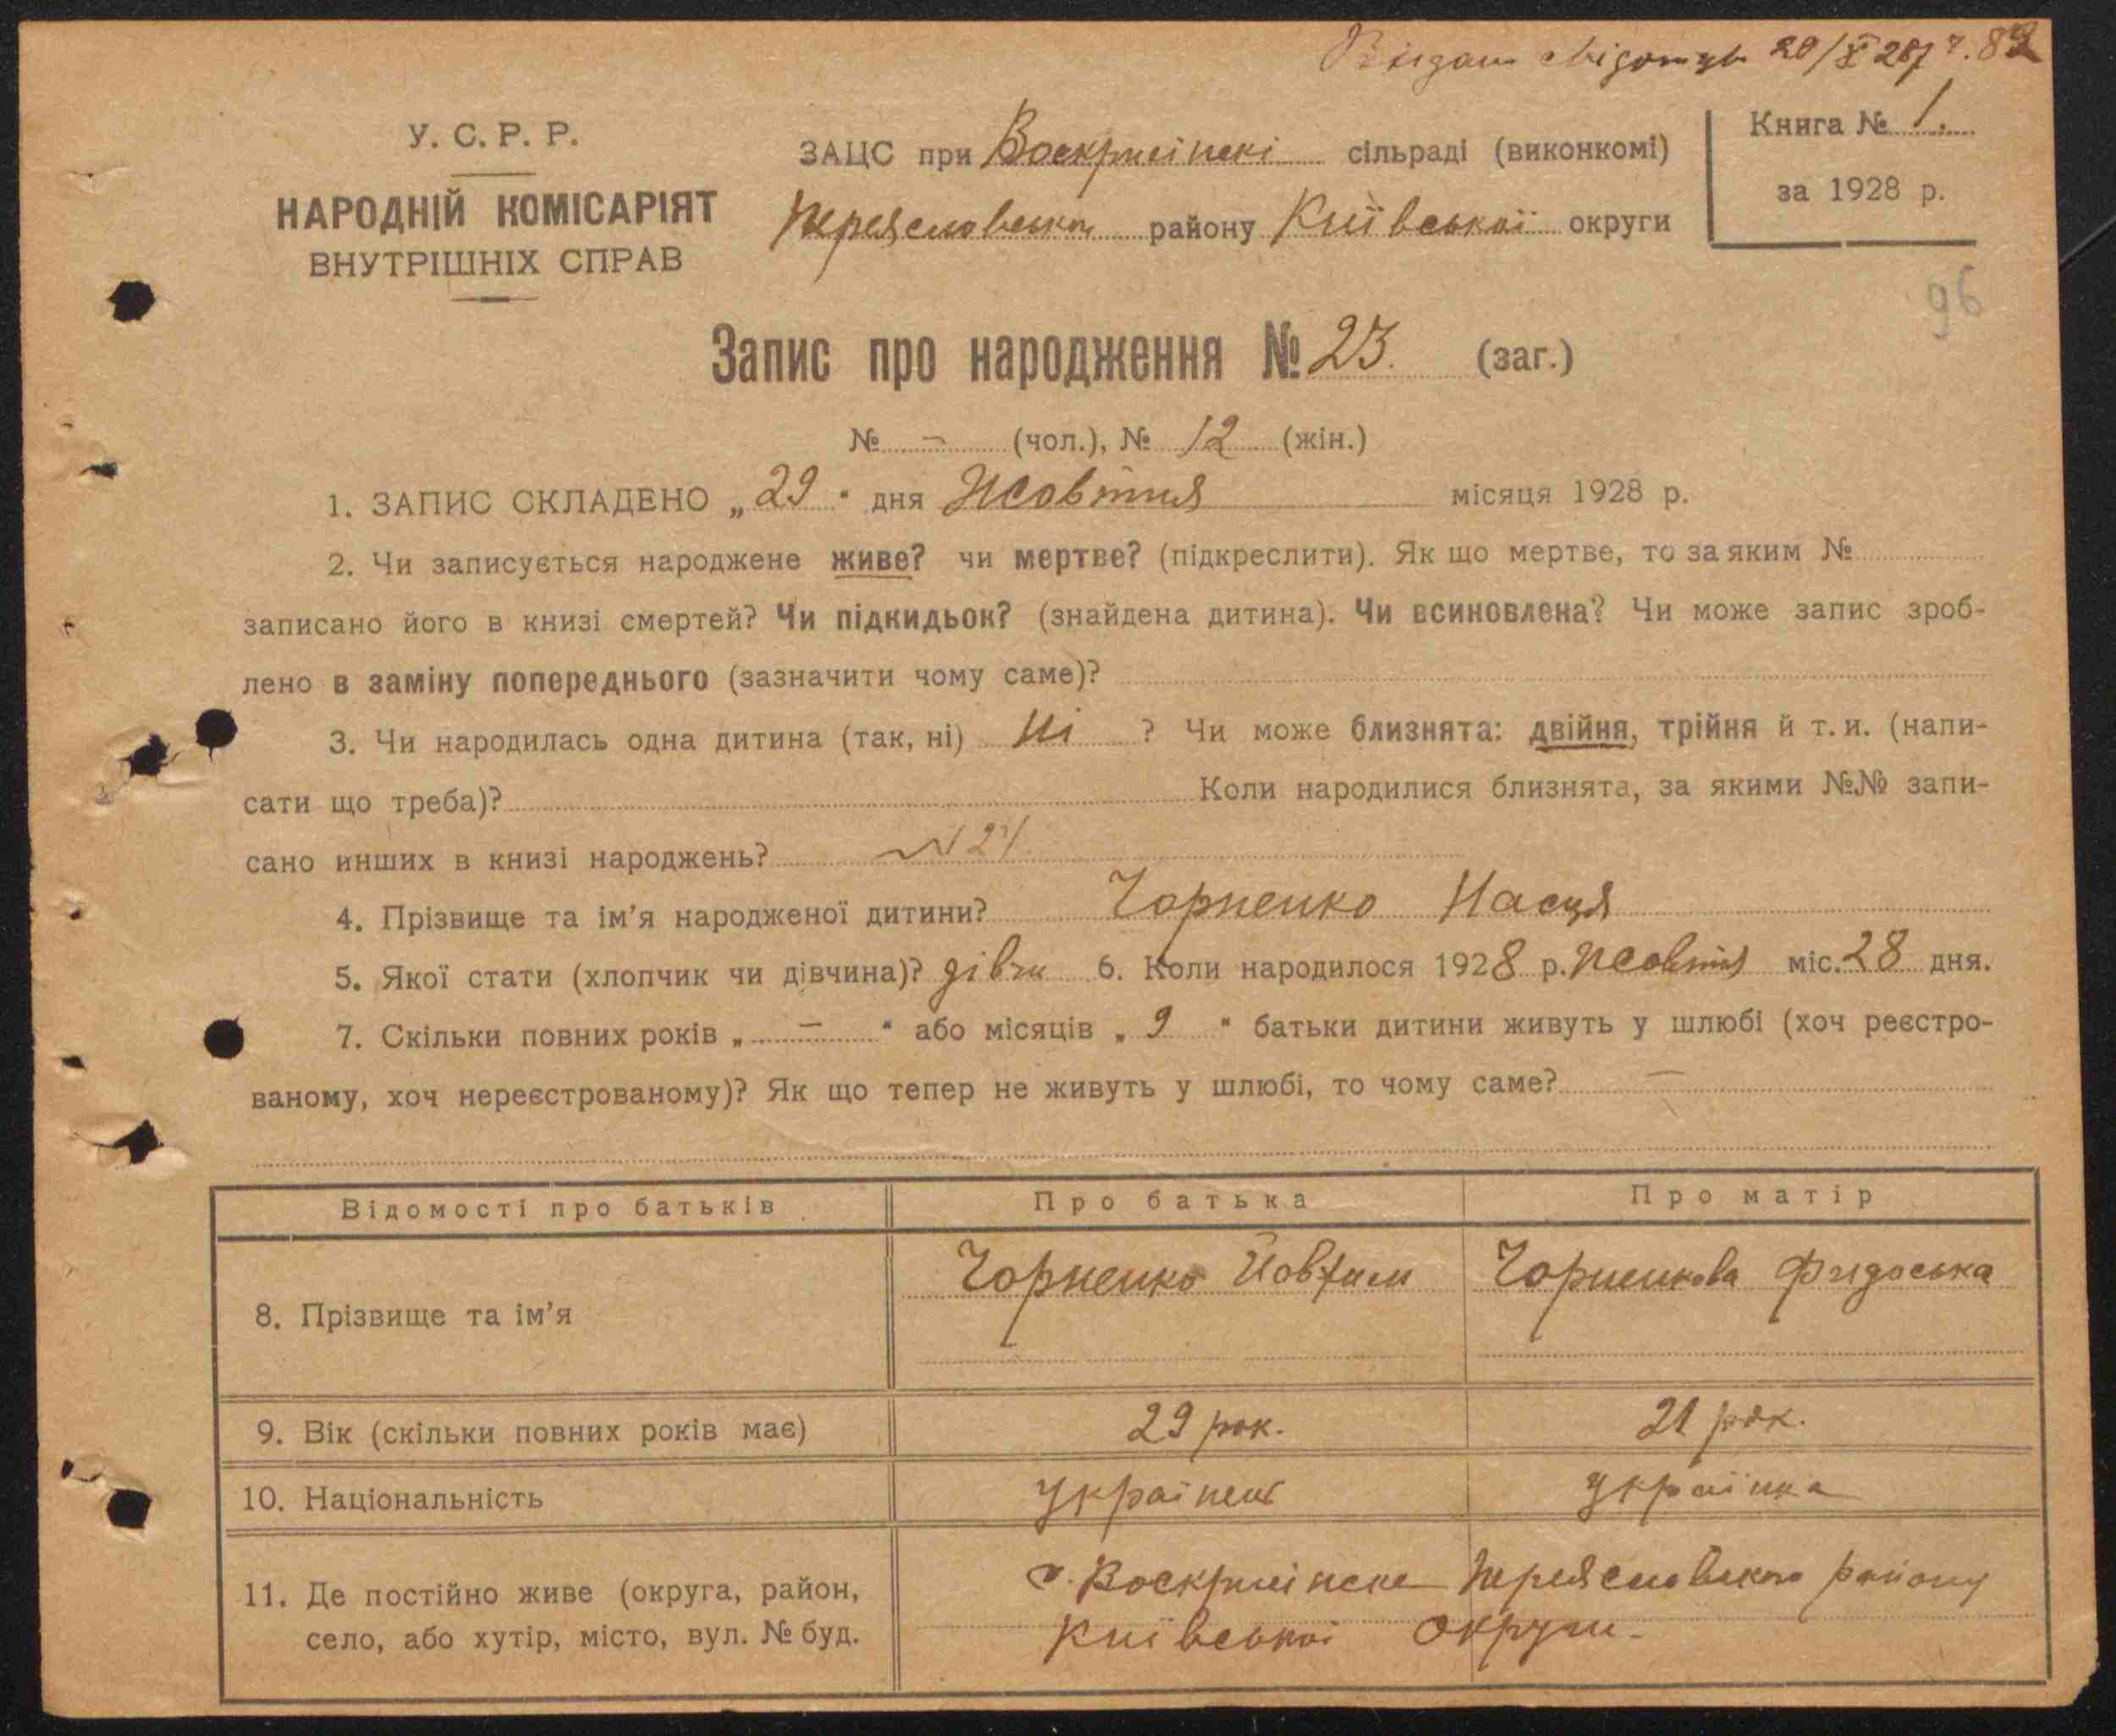 Видан свідоцтв 20/X 28 р. 
У. С. Р. Р.
НАРОДНІЙ КОМІСАРІЯТ
ВНУТРІШНІХ СПРАВ
ЗАЦС при Воскрисінскі сільраді (виконкомі)
Переяславськог району Київської округи
Книга № 1.
за 1928 р.
96
Запис про народження № 23. (заг.)
№ – (чол.), № 12 (жін.)
1. ЗАПИС СКЛАДЕНО „29" дня Жовтня місяця 1928 р.
2. Чи записується народжене живе? чи мертве? (підкреслити). Як що мертве, то за яким №
записано його в книзі смертей? Чи підкидьок? (знайдена дитина). Чи всиновлена? Чи може запис зроб-
лено в заміну попереднього (зазначити чому саме)?
3. Чи народилась одна дитина (так, ні) Ні ? Чи може близнята: двійня, трійня й т. и. (напи-
сати що треба)? Коли народилися близнята, за якими №№ запи-
сано инших в книзі народжень? № 24
4. Прізвище та ім'я народженої дитини? Чорненко Насця
5. Якої стати (хлопчик чи дівчина)? дівч 6. Коли народилося 1928 р. Жовтня міс. 28 дня.
7. Скільки повних років „ – " або місяців „ 9 " батьки дитини живуть у шлюбі (хоч реєстро-
ваному, хоч нереєстрованому)? Як що тепер не живуть у шлюбі, то чому саме? –
Відомості про батьків Про батька Про матір
8. Прізвище та ім'я Чорненко Йовхим Чорненкова Фидоська
9. Вік (скільки повних років має) 29 рок. 21 рок.
10. Національність Українець Українка
11. Де постійно живе (округа, район, с. Воскрисінске Переяславського району
село, або хутір, місто, вул. № буд. Київської округи.